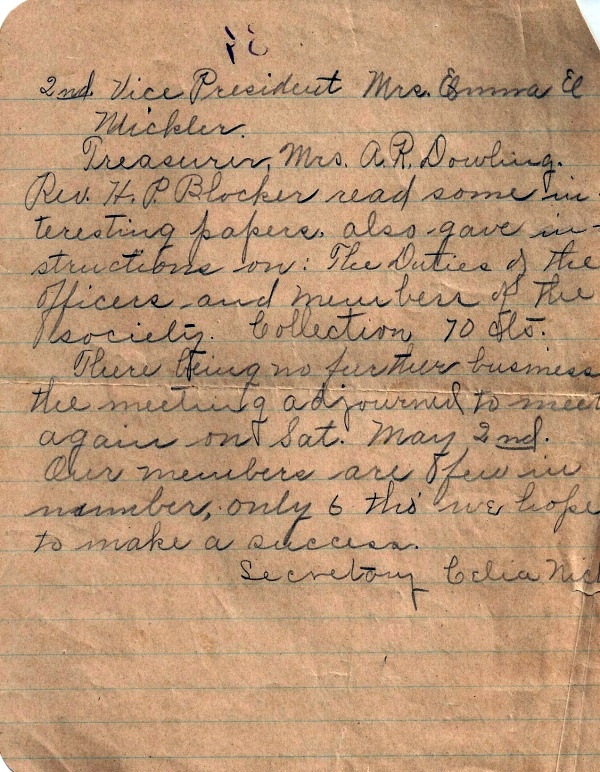 2nd Vice President Mrs. Emma El
Mickler.
Treasurer, Mrs. A. R. Dowling.
Rev. H. P. Blocker read some in-
teresting papers, also gave in-
structions on: The Duties of the
officers and members of the
society. Collection 70 cts.
There being no further business
the meeting adjourned to meet
again on Sat. May 2nd.
Our members are few in
number, only 6 tho' we hope
to make a success.
Secretary Celia Nick